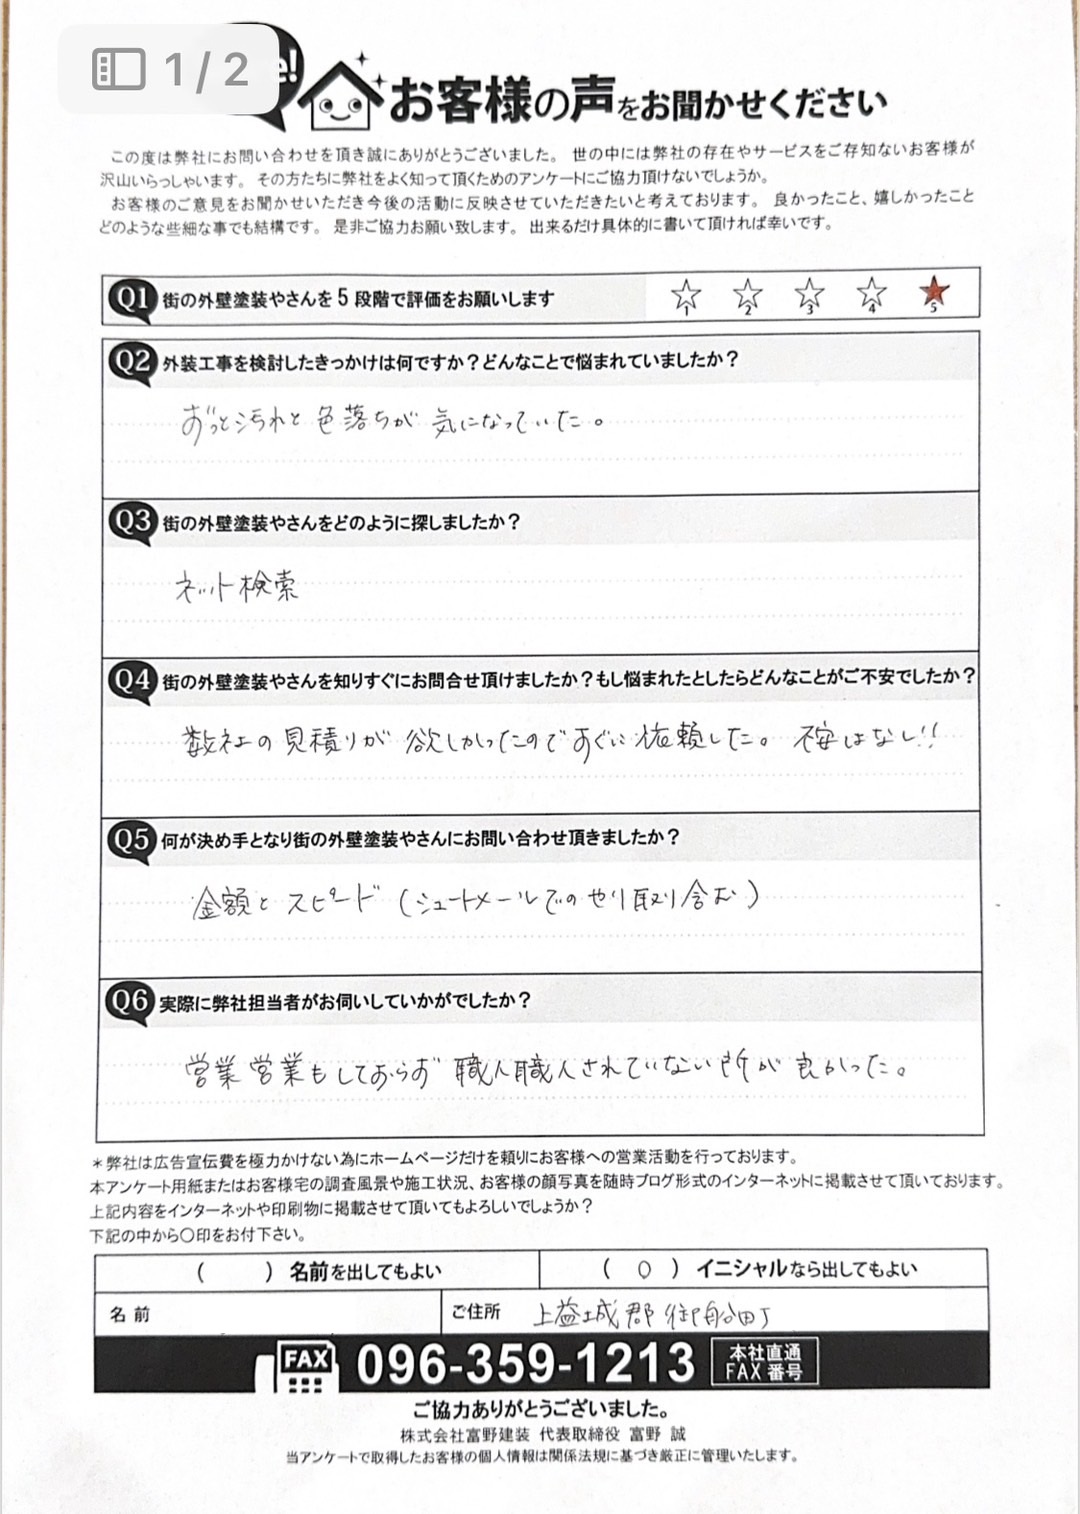 1/2
e!
お客様の声をお聞かせください
この度は弊社にお問い合わせを頂き誠にありがとうございました。世の中には弊社の存在やサービスをご存知ないお客様が
沢山いらっしゃいます。その方たちに弊社をよく知って頂くためのアンケートにご協力頂けないでしょうか。
お客様のご意見をお聞かせいただき今後の活動に反映させていただきたいと考えております。良かったこと、嬉しかったこと
どのような些細な事でも結構です。是非ご協力お願い致します。出来るだけ具体的に書いて頂ければ幸いです。
Q1 街の外壁塗装やさんを5段階で評価をお願いします
1 2 3 4 5
Q2 外装工事を検討したきっかけは何ですか？どんなことで悩まれていましたか？
ずっと汚れと色落ちが気になっていた。
Q3 街の外壁塗装やさんをどのように探しましたか？
ネット検索
Q4 街の外壁塗装やさんを知りすぐにお問合せ頂けましたか？もし悩まれたとしたらどんなことがご不安でしたか？
数社の見積りが欲しかったのですぐに依頼した。不安はなし!!
Q5 何が決め手となり街の外壁塗装やさんにお問い合わせ頂きましたか？
金額とスピード（ショートメールでのやり取り含む）
Q6 実際に弊社担当者がお伺いしていかがでしたか？
営業営業もしておらず職人職人されていない所が良かった。
＊弊社は広告宣伝費を極力かけない為にホームページだけを頼りにお客様への営業活動を行っております。
本アンケート用紙またはお客様宅の調査風景や施工状況、お客様の顔写真を随時ブログ形式のインターネットに掲載させて頂いております。
上記内容をインターネットや印刷物に掲載させて頂いてもよろしいでしょうか？
下記の中から〇印をお付下さい。
（　）名前を出してもよい
（○）イニシャルなら出してもよい
名前
ご住所 上益城郡御船町
FAX 096-359-1213 本社直通 FAX番号
ご協力ありがとうございました。
株式会社富野建装 代表取締役 富野 誠
当アンケートで取得したお客様の個人情報は関係法規に基づき厳正に管理いたします。